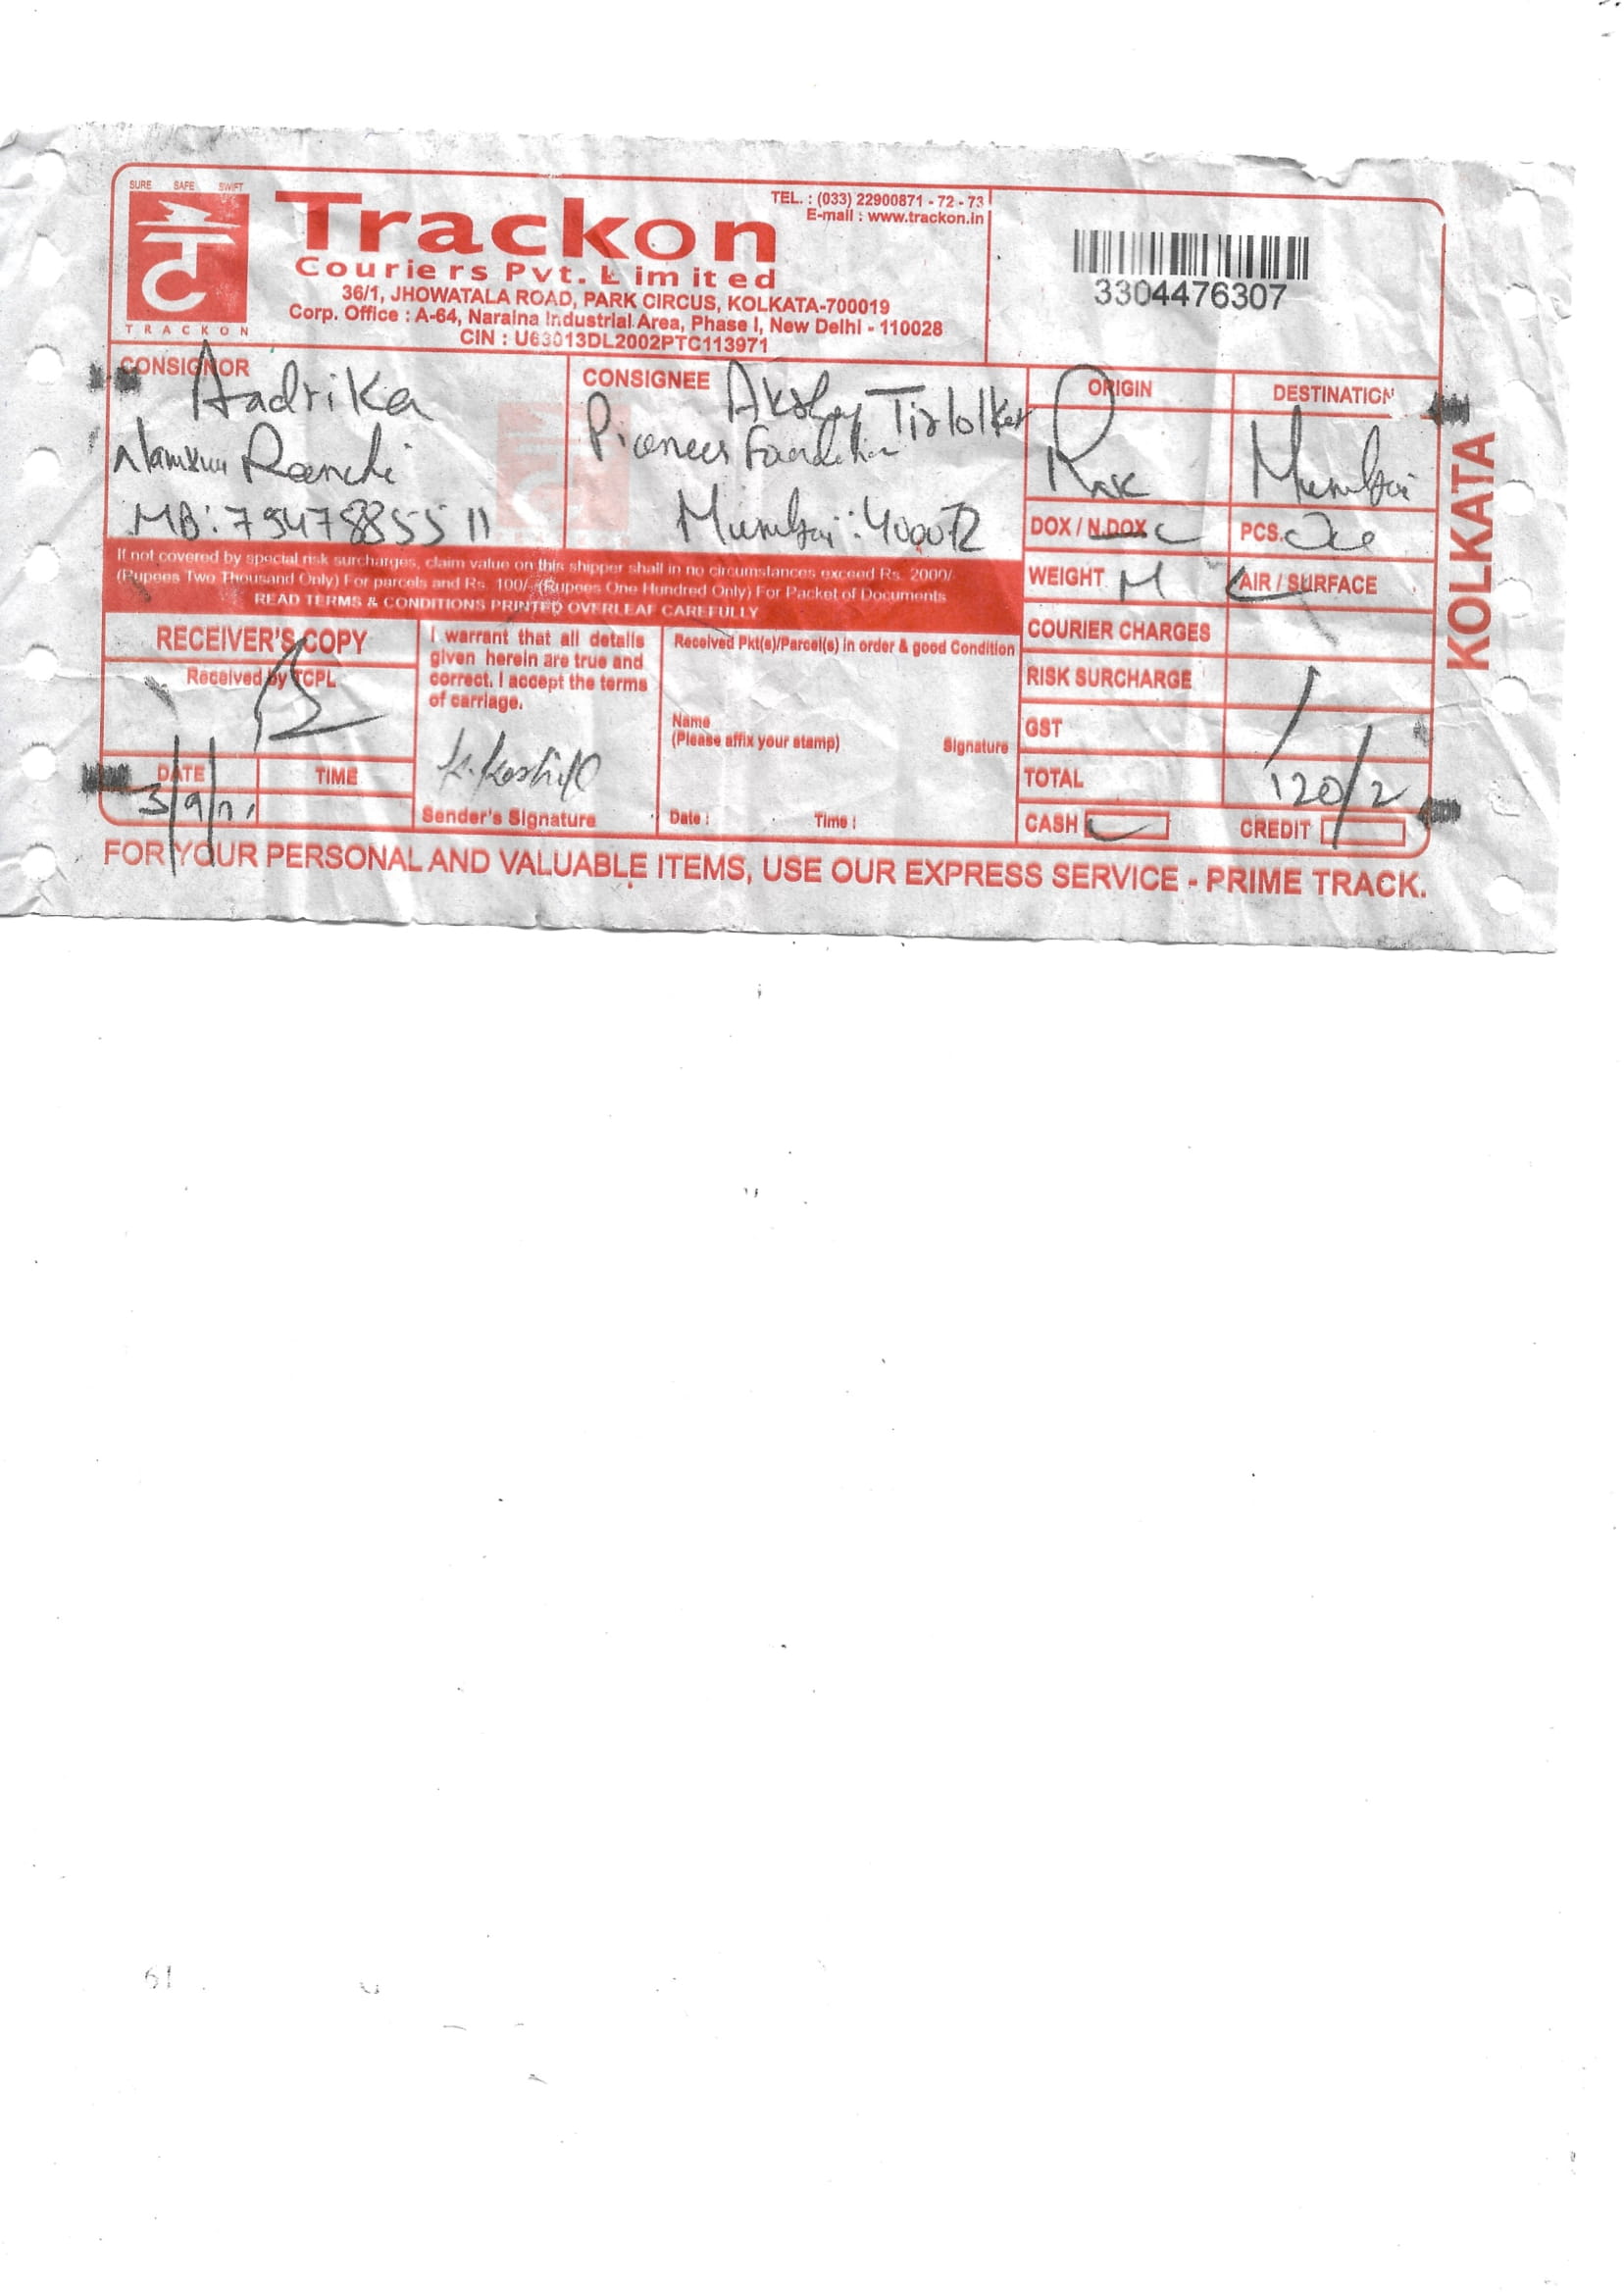 SURE SAFE SWIFT
TRACKON
Trackon
Couriers Pvt. Limited
36/1, JHOWATALA ROAD, PARK CIRCUS, KOLKATA-700019
Corp. Office : A-64, Naraina Industrial Area, Phase I, New Delhi - 110028
CIN : U63013DL2002PTC113971
TEL. : (033) 22900871 - 72 - 73
E-mail : www.trackon.in
3304476307
CONSIGNOR
Aadrika
Namkum Ranchi
MB: 7947885511
CONSIGNEE
Akshay Tirlolker
Pioneer Foundation
Mumbai: 400072
ORIGIN
DESTINATION
Mumbai
DOX / N.DOX
PCS. One
WEIGHT M
AIR / SURFACE
COURIER CHARGES
RISK SURCHARGE
GST
TOTAL 120/2
CASH
CREDIT
KOLKATA
If not covered by special risk surcharges, claim value on this shipper shall in no circumstances exceed Rs. 2000/-
(Rupees Two Thousand Only) For parcels and Rs. 100/- (Rupees One Hundred Only) For Packet of Documents
READ TERMS & CONDITIONS PRINTED OVERLEAF CAREFULLY
RECEIVER'S COPY
Received by TCPL
DATE
TIME
3/9/
I warrant that all details
given herein are true and
correct. I accept the terms
of carriage.
Sender's Signature
Received Pkt(s)/Parcel(s) in order & good Condition
Name
(Please affix your stamp)
Signature
Date :
Time :
FOR YOUR PERSONAL AND VALUABLE ITEMS, USE OUR EXPRESS SERVICE - PRIME TRACK.